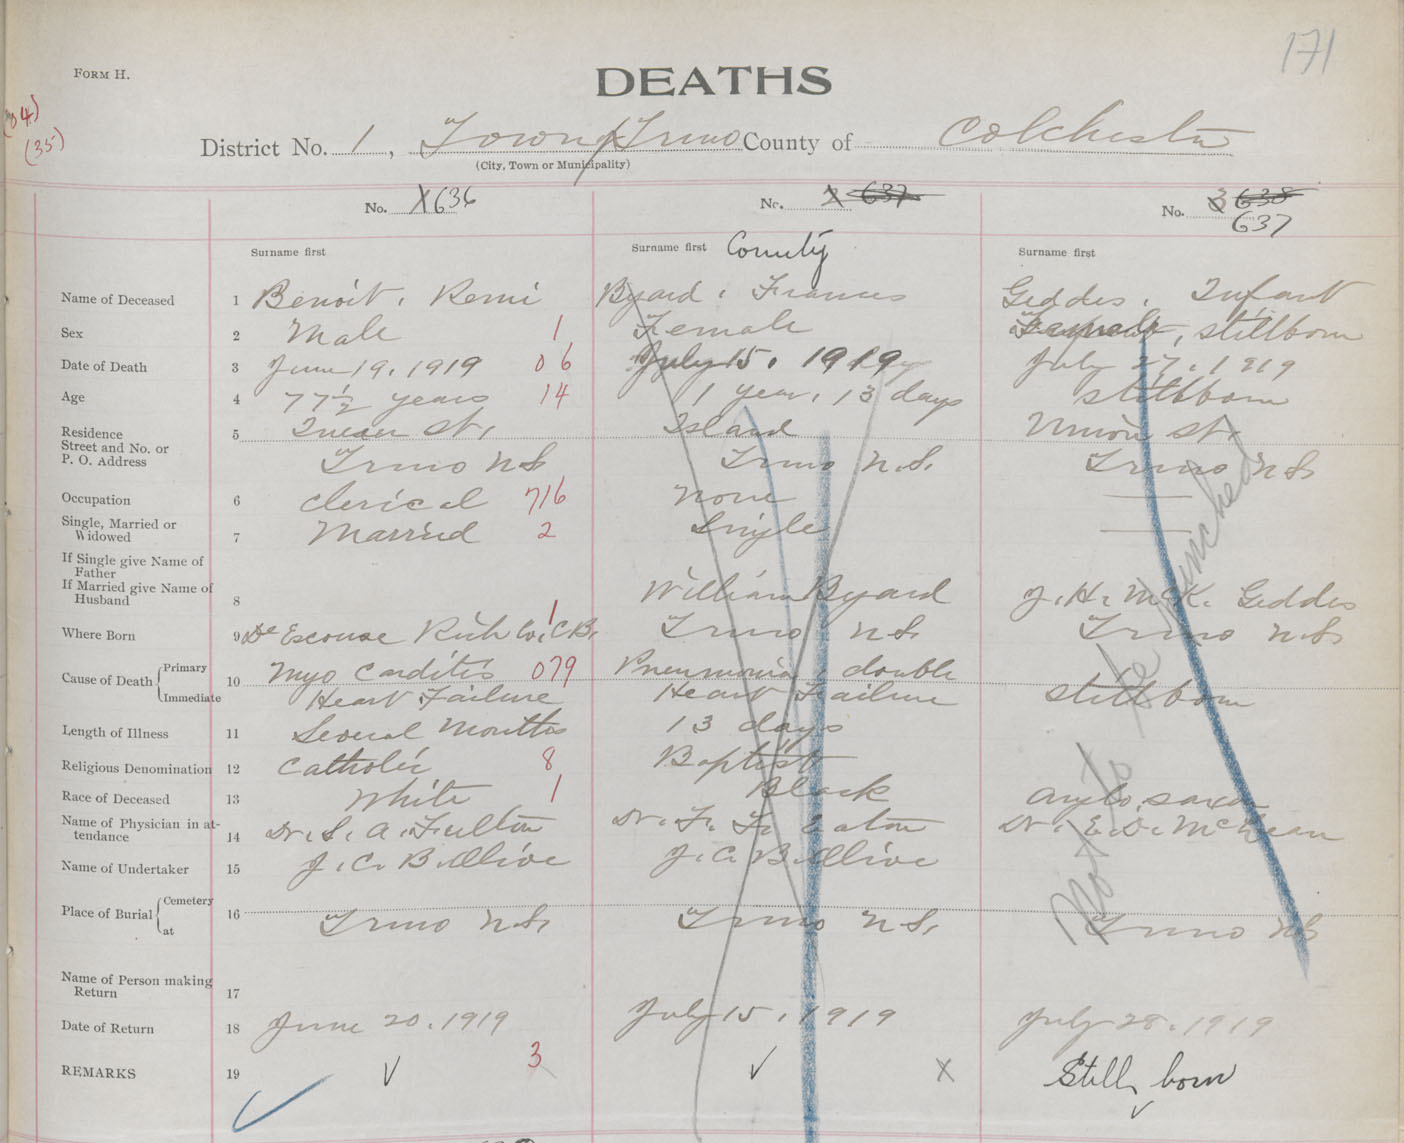 171
FORM H.
DEATHS
(35)
District No. 1, Town of Truro County of Colchester
(City, Town or Municipality)
No. X 636 No. 2 637 No. 3 638
637
Surname first Surname first County Surname first
Name of Deceased 1 Benoit, Remi Byard, Frances Geddes, Infant
Sex 2 Male 1 Female Female, stillborn
Date of Death 3 June 19, 1919 06 July 15, 1919 July 27, 1919
Age 4 77½ years 14 1 year, 13 days stillborn
Residence 5 Queen St, Island Union St.
Street and No. or
P. O. Address Truro N.S. Truro N.S. Truro N.S.
Occupation 6 Clerical 716 None
Single, Married or
Widowed 7 Married 2 Single
If Single give Name of
Father
If Married give Name of
Husband 8 William Byard J. H. McK. Geddes
Where Born 9 De Escouse Rich Co, C.B. 1 Truro N.S. Truro N.S.
Cause of Death { Primary 10 Myo Carditis 079 Pneumonia double
Immediate Heart Failure Heart Failure stillborn
Length of Illness 11 Several Months 13 days
Religious Denomination 12 Catholic 8 Baptist
Race of Deceased 13 White 1 Black Anglo saxon
Name of Physician in at-
tendance 14 Dr. S. A. Fulton Dr. F. F. Eaton Dr. E. D. McLean
Name of Undertaker 15 J. C. B. Olive J. C. B. Olive
Place of Burial { Cemetery 16
at Truro N.S. Truro N.S. Truro N.S.
Name of Person making
Return 17
Date of Return 18 June 20, 1919 July 15, 1919 July 28, 1919
REMARKS 19 3 X Still born
Not to be punched